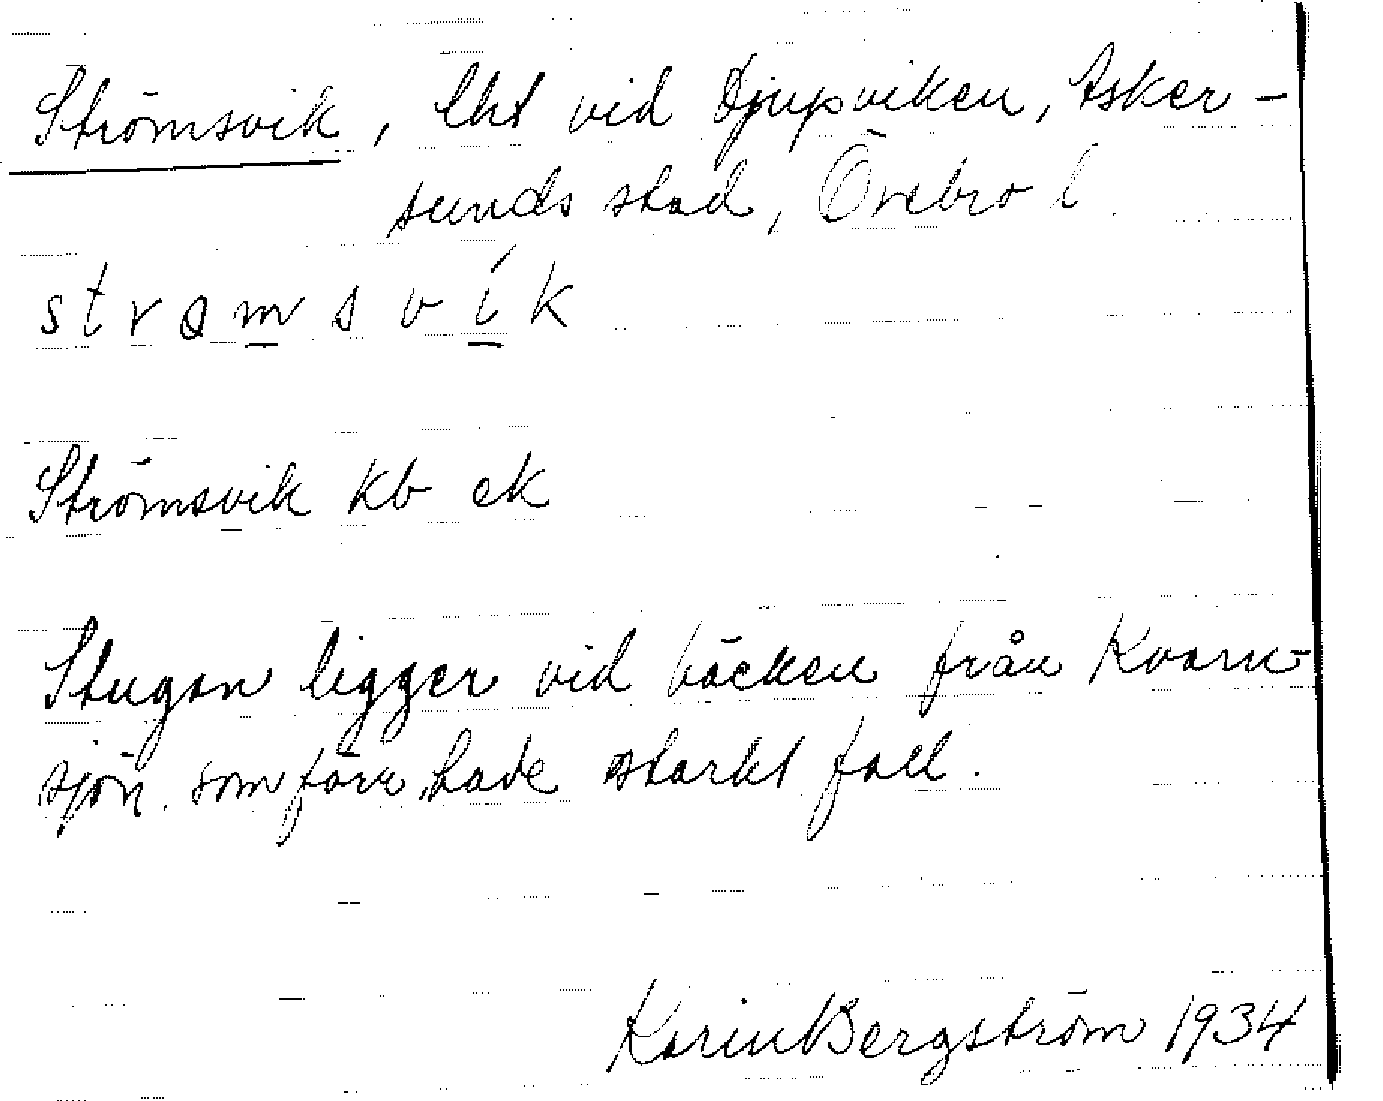 Strömsvik, lht vid Djupviken, Asker-
sunds stad, Örebro l.
strømsvík
Strömsvik kb ek
Stugan ligger vid bäcken från Kvarn-
sjön, som förr hade starkt fall.
Karin Bergström 1934